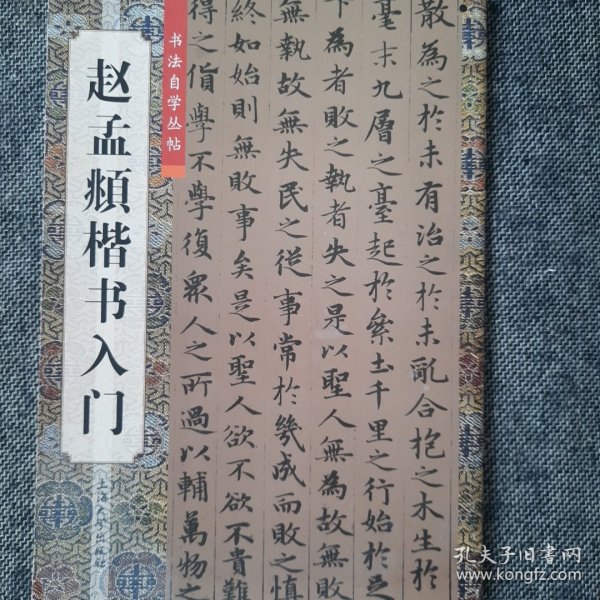 赵孟頫楷书入门
上海大学出版社
书法自学丛帖
散為之於未有治之於未亂合抱之木生於
毫末九層之臺起於累土千里之行始於足
下為者敗之執者失之是以聖人無為故無敗
無執故無失民之從事常於幾成而敗之慎
終如始則無敗事矣是以聖人欲不欲不貴難
得之貨學不學復衆人之所過以輔萬物之
孔夫子旧书网
www.kongfz.com